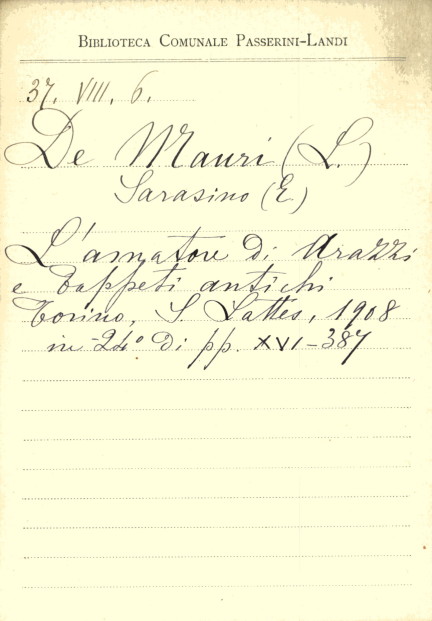 BIBLIOTECA COMUNALE PASSERINI-LANDI
37. VIII. 6.
De Mauri (L.)
Sarasino (E.)
L'amatore di Arazzi
e Tappeti antichi
Torino, S. Lattes, 1908
in-24° di pp. XVI-387